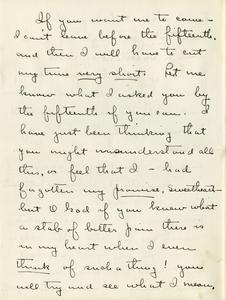 If you want me to come -
I can't leave before the fifteenth,
and then I will have to cut
my time very short. Let me
know what I asked you by
the fifteenth if you can. I
have just been thinking that
you might misunderstand all
this, or feel that I - had
forgotten my promise, sweetheart -
but O God if you knew what
a stab of bitter pain there is
in my heart when I even
think of such a thing! You
will try and see what I mean,